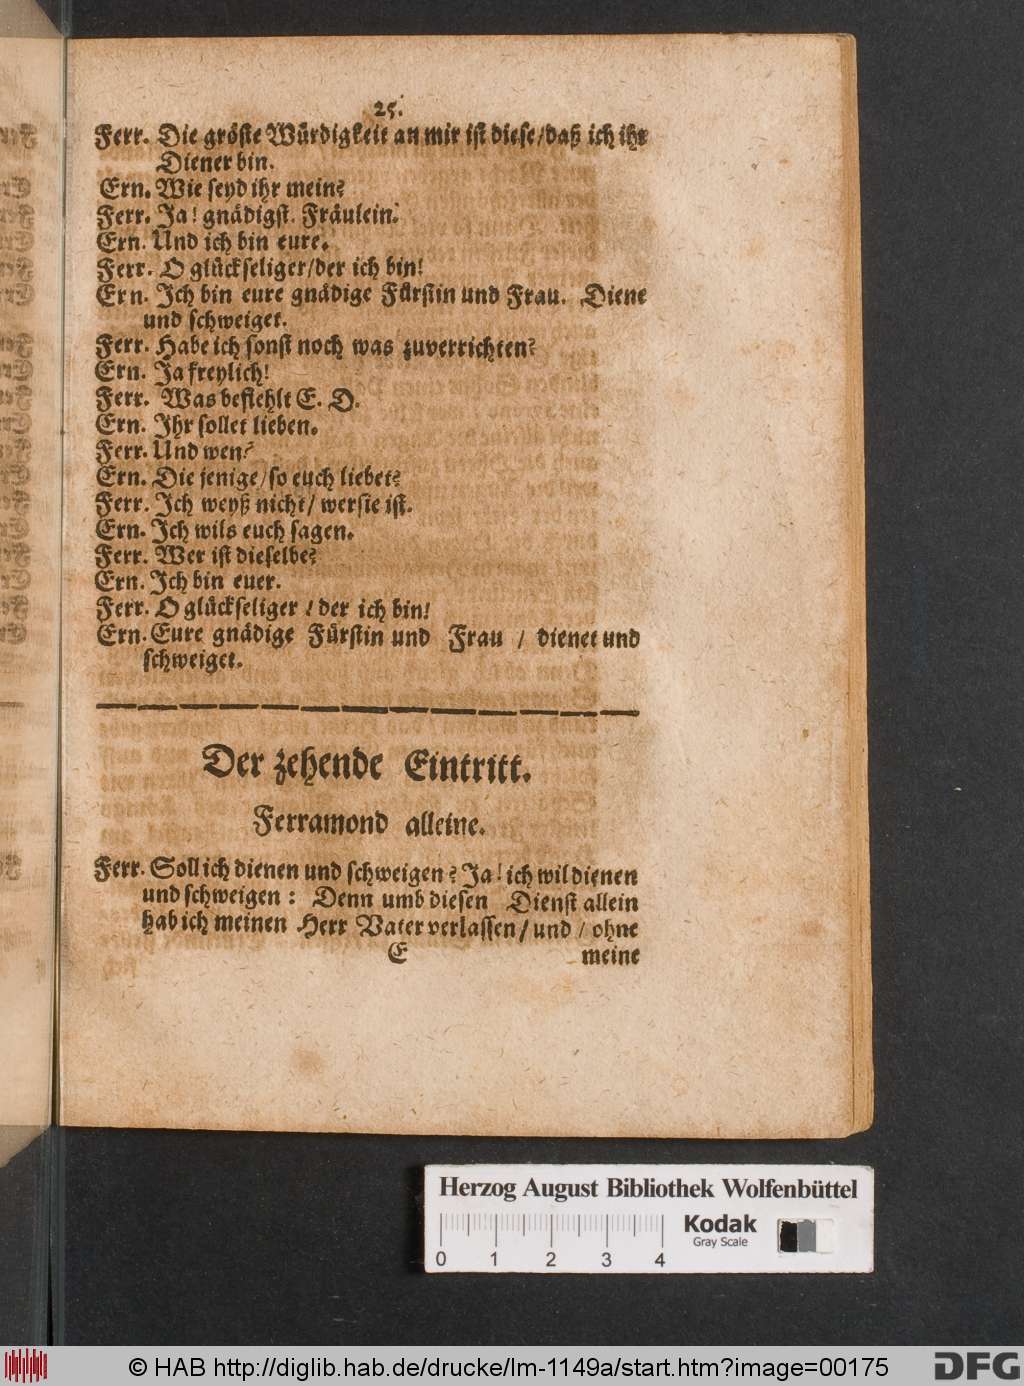 25.
Ferr. Die gröste Würdigkeit an mir ist diese/daß ich ihr
Diener bin.
Ern. Wie seyd ihr mein?
Ferr. Ja! gnädigst. Fräulein.
Ern. Und ich bin eure.
Ferr. O glückseliger/der ich bin!
Ern. Ich bin eure gnädige Fürstin und Frau. Diene
und schweiget.
Ferr. Habe ich sonst noch was zuverrichten?
Ern. Ja freylich!
Ferr. Was befiehlt E. D.
Ern. Ihr sollet lieben.
Ferr. Und wen?
Ern. Die jenige/so euch liebet?
Ferr. Ich weyß nicht/ wer sie ist.
Ern. Ich wils euch sagen.
Ferr. Wer ist dieselbe?
Ern. Ich bin euer.
Ferr. O glückseliger / der ich bin!
Ern. Eure gnädige Fürstin und Frau / dienet und
schweiget.
Der zehende Eintritt.
Ferramond alleine.
Ferr. Soll ich dienen und schweigen? Ja! ich wil dienen
und schweigen: Denn umb diesen Dienst allein
hab ich meinen Herr Vater verlassen/ und / ohne
E meine
Herzog August Bibliothek Wolfenbüttel
Kodak
Gray Scale
0 1 2 3 4
© HAB http://diglib.hab.de/drucke/lm-1149a/start.htm?image=00175
DFG